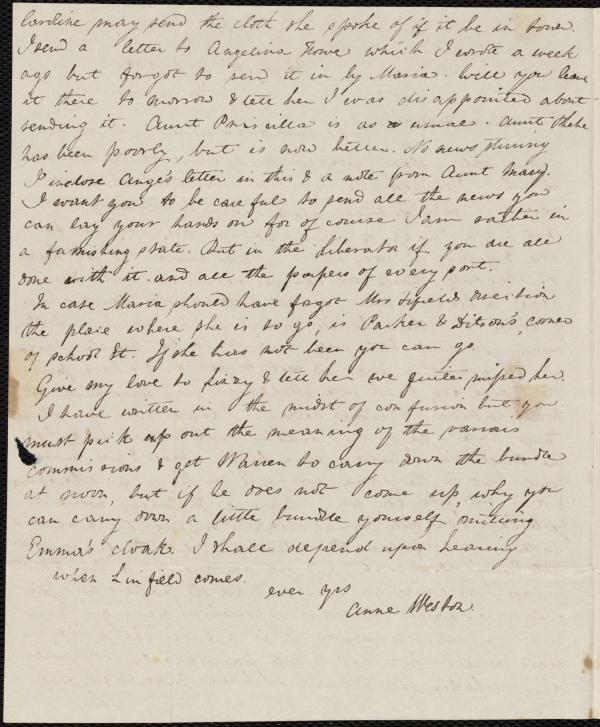 Caroline may send the cloth she spoke of if it be in town.
I send a letter to Angelina Howe which I wrote a week
ago but forgot to send it in by Maria. Will you leave
it there to morrow & tell her I was disappointed about
sending it. Aunt Priscilla is as usual. Aunt Phebe
has been poorly, but is now better. No news stirring
I inclose Ange's letter in this & a note from Aunt Mary.
I want you to be careful to send all the news you
can lay your hands on for of course I am rather in
a famishing state. Put in the Liberator if you are all
done with it. and all the papers of every sort.
In case Maria should have forgot Mrs Fifields direction
the place where she is to go, is Parker & Ditson's, corner
of school St. If she has not been you can go.
Give my love to Lizzy & tell her we quite missed her.
I have written in the midst of confusion but you
must pick up out the meaning of the various
commissions & get Warren to carry down the bundle
at noon, but if he does not come up, why you
can carry down a little bundle yourself omitting
Emma's cloak. I shall depend upon hearing
when Linfield comes.
ever yrs
Anne Weston.